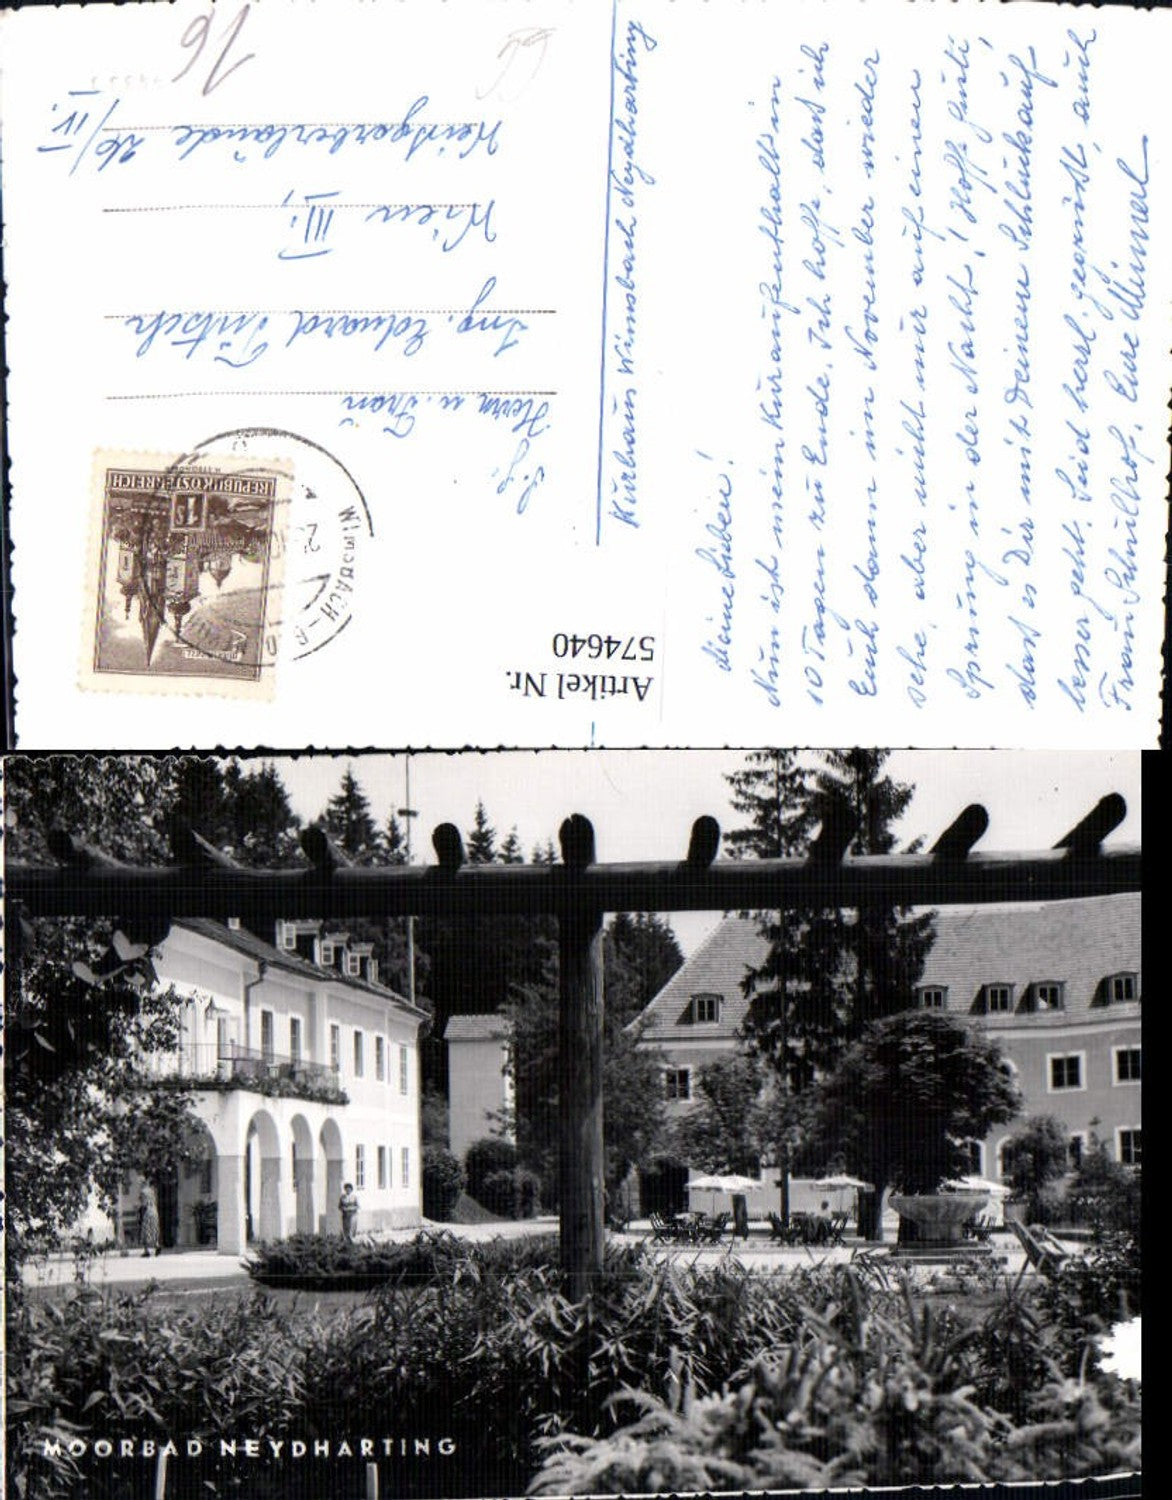 Meine Lieben!
Nun ist mein Kuraufenthalt in
10 Tagen zu Ende. Ich hoffe, daß ich
Euch dann im November wieder
sehe, aber nicht nur auf einen
Sprung in der Nacht! Hoffentl.,
daß es Dir mit Deinem Schluckauf
besser geht. Seid herzl. gegrüßt, auch
Frau Schulhof. Eure
Kurhaus Wimsbach Neydharting
Herrn u. Frau
Ing. Eduard Fritsch
Wien III,
26/IV.
16
REPUBLIK OSTERREICH
1 S
WIMSBACH-N
Artikel Nr.
574640
MOORBAD NEYDHARTING